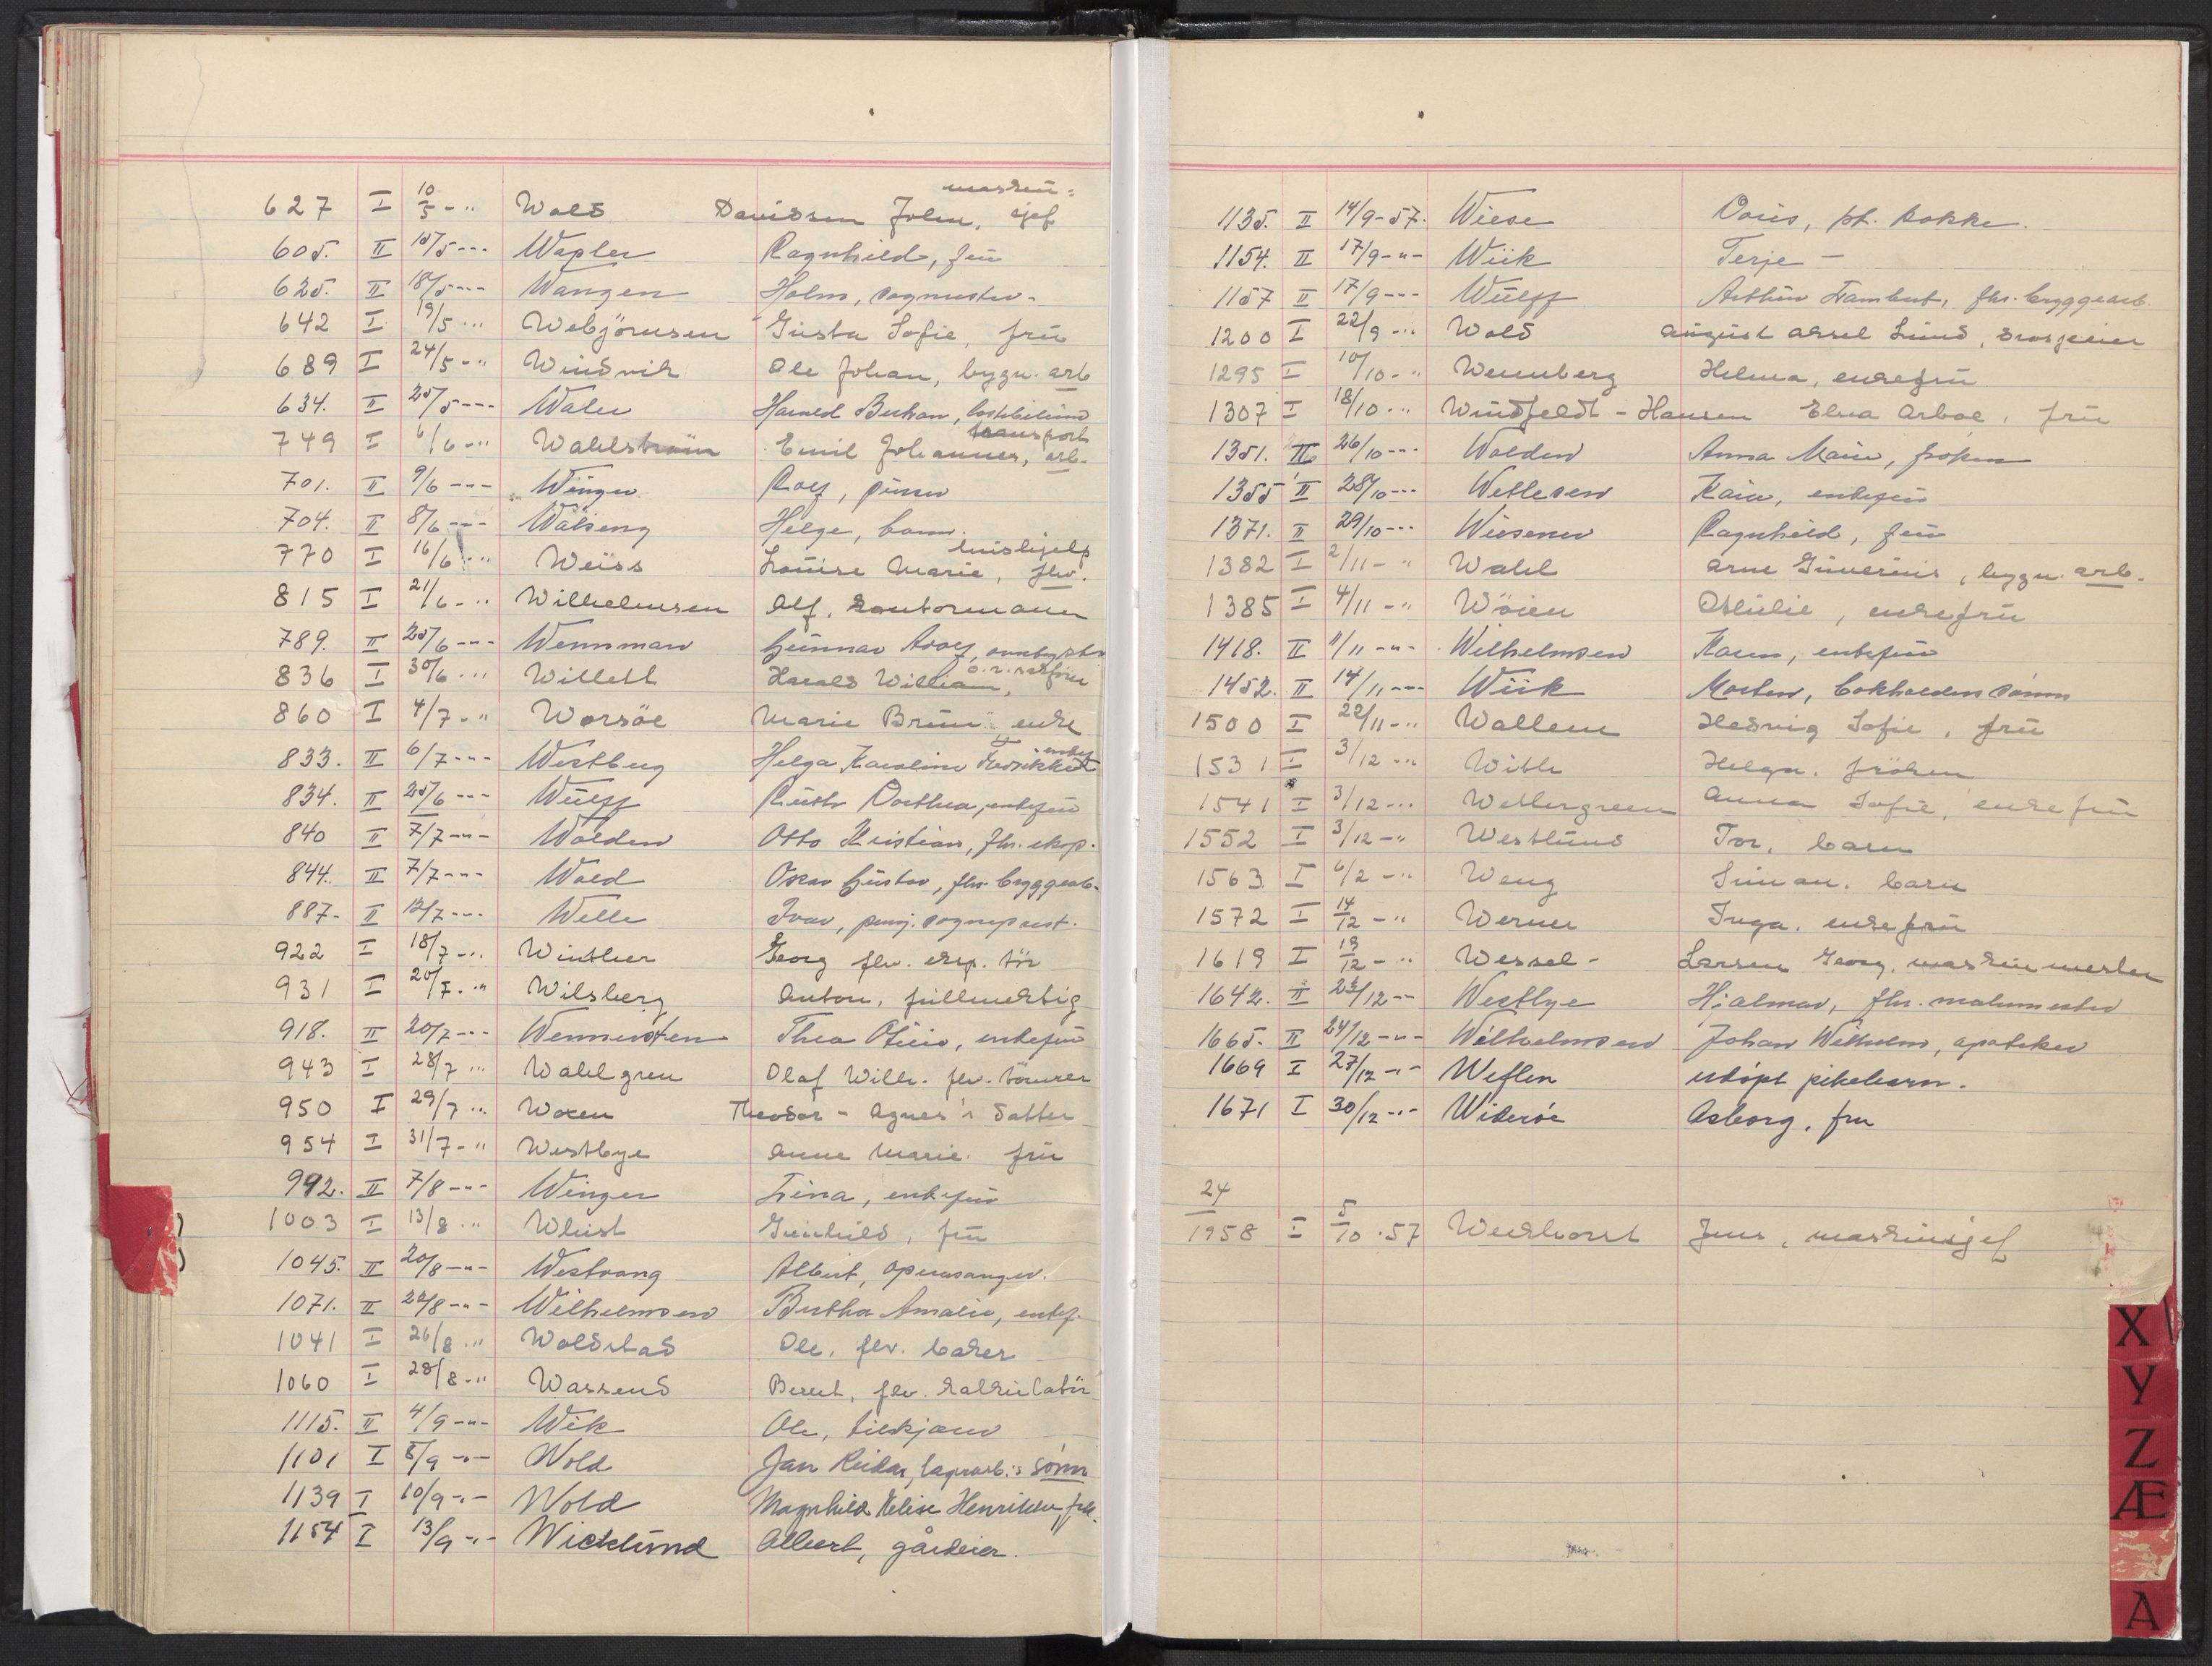 627 I 10/5 -" Wold Davidsen John, maskin=sjef
605. II 15/5 -"- Wapler Ragnhild, frü
625. II 18/5 -"- Wangen Holm, sognester.
642 I 19/5 -" Webjörnsen Güsta Sofie, frü
689 I 24/5 -" Windvik Ole Johan, bygn. arb
634. II 25/5 -"- Waler Harald
749 I 6/6 -" Wahlström Emil Johannes, transport arb.
701. II 9/6 -"- Winger Rolf
704. II 8/6 -"- Wålseng Helge, barn.
770 I 16/6 -" Weiss Loüise Marie, flv. hüshjelp
815 I 21/6 -" Wilhelmsen Alf, kontormann
789. II 25/6 -"- Wennman Günnar Adolf,
836 I 30/6 -" Willett Harald William, o.r.sakfürer
860 I 4/7 -" Worsöe Marie Brün enke
833. II 6/7 -"- Westberg Helga Karoline Fredrikke enkef
834. II 25/6 -"- Wülff Rüth Dorthea, enkefrü
840 II 7/7 -"- Wolden Otto Kristian, fhv. eksp.
844. II 7/7 -"- Wold Oskar Güstav, fhv. bryggearb.
887- II 12/7 -"- Welle Ivar, pensj. sogneprest.
922 I 18/7 -" Winther Georg flv. eksp. tör
931 I 20/7 -" Wilsberg Anton, füllmektig
918. II 20/7 -"- Wennersten Thea Otilie, enkefrü
943 I 28/7 -" Wahlgren Olaf Wilh. flv. tömrer
950 I 29/7 -" Woxen Theodor - Agnes's datter
954 I 31/7 -" Westbye Anne Marie. frü
992. II 7/8 -"- Winger Lina, enkefrü
1003 I 13/8 -" Whist Günhild, frü
1045. II 20/8 -"- Westvang Albert, operasanger.
1071. II 22/8 -"- Wilhelmsen Bertha Amalie, enkef.
1041 I 26/8 -" Woldstad Ole. flv. baker
1060 I 28/8 -" Wassend Berut, flv. kalkülatör
1115. II 4/9 -"- Wik Ole,
1101 I 8/9 -"- Wold Jan Reidar, lagerarb.'s sønn
1139 I 10/9 -"- Wold Magnhild Helise Henrikke, frk.
1154 I 13/9 -"- Wicklünd Albert, gårdeier.
1135. II 14/9-57. Wiese Doris, pt. kokke.
1154. II 17/9 -"- Wiik Terje -
1157 II 17/9 -"- Wülff Arthür Lambert, fhv. bryggearb.
1200 I 22/9 -" Wold Aügüst Aksel Lünd, drosjeeier
1295 I 10/10 -" Wennberg Helma, enkefrü
1307 I 18/10 -" Windfeldt - Hansen Elna Arboe, frü
1351. II 26/10 -"- Wolden Anna Marie, frøken
1355 II 28/10 -"- Wetlesen Kaia, enkefrü
1371. II 29/10 -"- Wiesener Ragnhild, frü
1382 I 2/11 -" Wahl Arne Günerius, bygn. arb.
1385 I 4/11 -" Wöien Othilie, enkefrü
1418. II 11/11 -"- Wilhelmsen Karen, enkefrü
1452. II 14/11 -"- Wiik Morten, bokholders sønn
1500 I 22/11 -" Wallem Hedvig Sofie, frü
1531 I 3/12 -" With Helga. fröken
1541 I 3/12 -" Wettergreen Anna Sofie, enkefrü
1552 I 3/12 -" Westlünd Tor, barn
1563 I 6/2 -" Weng Simon. barn
1572 I 14/12 -" Werner Inga. enkefrü
1619 I 19/12 -" Wessel - Larsen Georg, maskinmester
1642. II 23/12 -"- Westbye Hjalmar, fhv. malermester
1665. II 24/12 -"- Wilhelmsen Johan Wilhelm, apoteker
1669 I 27/12 -"- Weflen udöpt pikebarn.
1671 I 30/12 -"- Widerøe Asborg, fru
24/1958 I 5/10.57 Weekhorst Jens, maskinsjef
X
Y
Z
Æ
A